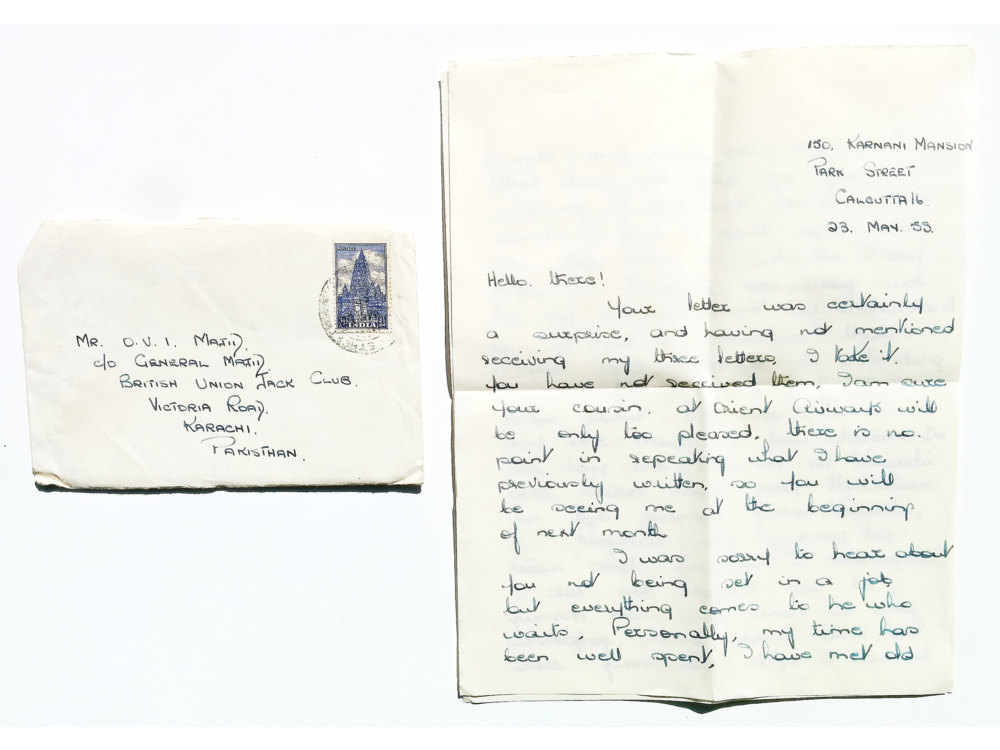 MR. D.V.I. MAJID.
C/o GENERAL MAJID
BRITISH UNION JACK CLUB.
VICTORIA ROAD.
KARACHI.
PAKISTHAN.
POSTAGE
INDIA
150, KARNANI MANSION
PARK STREET
CALCUTTA 16.
23. MAY. 53.
Hello. there!
Your letter was certainly
a surprise, and having not mentioned
receiving my three letters, I take it
you have not received them, I am sure
your cousin. at Orient Airways will
be only too pleased, there is no.
point in repeating what I have
previously written, so you will
be seeing me at the beginning
of next month
I was sorry to hear about
you not being set in a job,
but everything comes to he who
waits. Personally, my time has
been well spent, I have met old